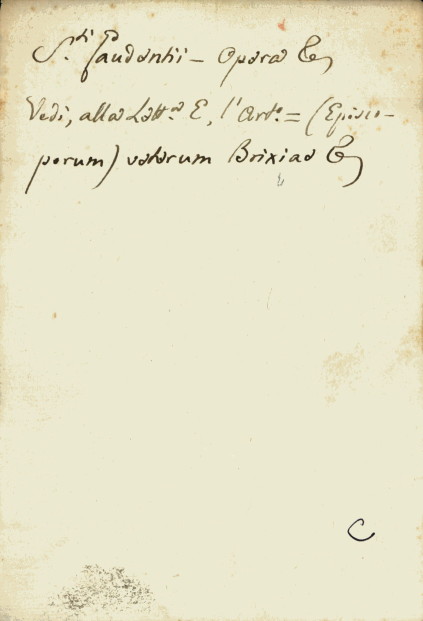 S.ti Gaudentii - Opera &c
Vedi, alla Lett.a E, l'Art.o = (Episco-
porum) veterum Brixiae &c
C